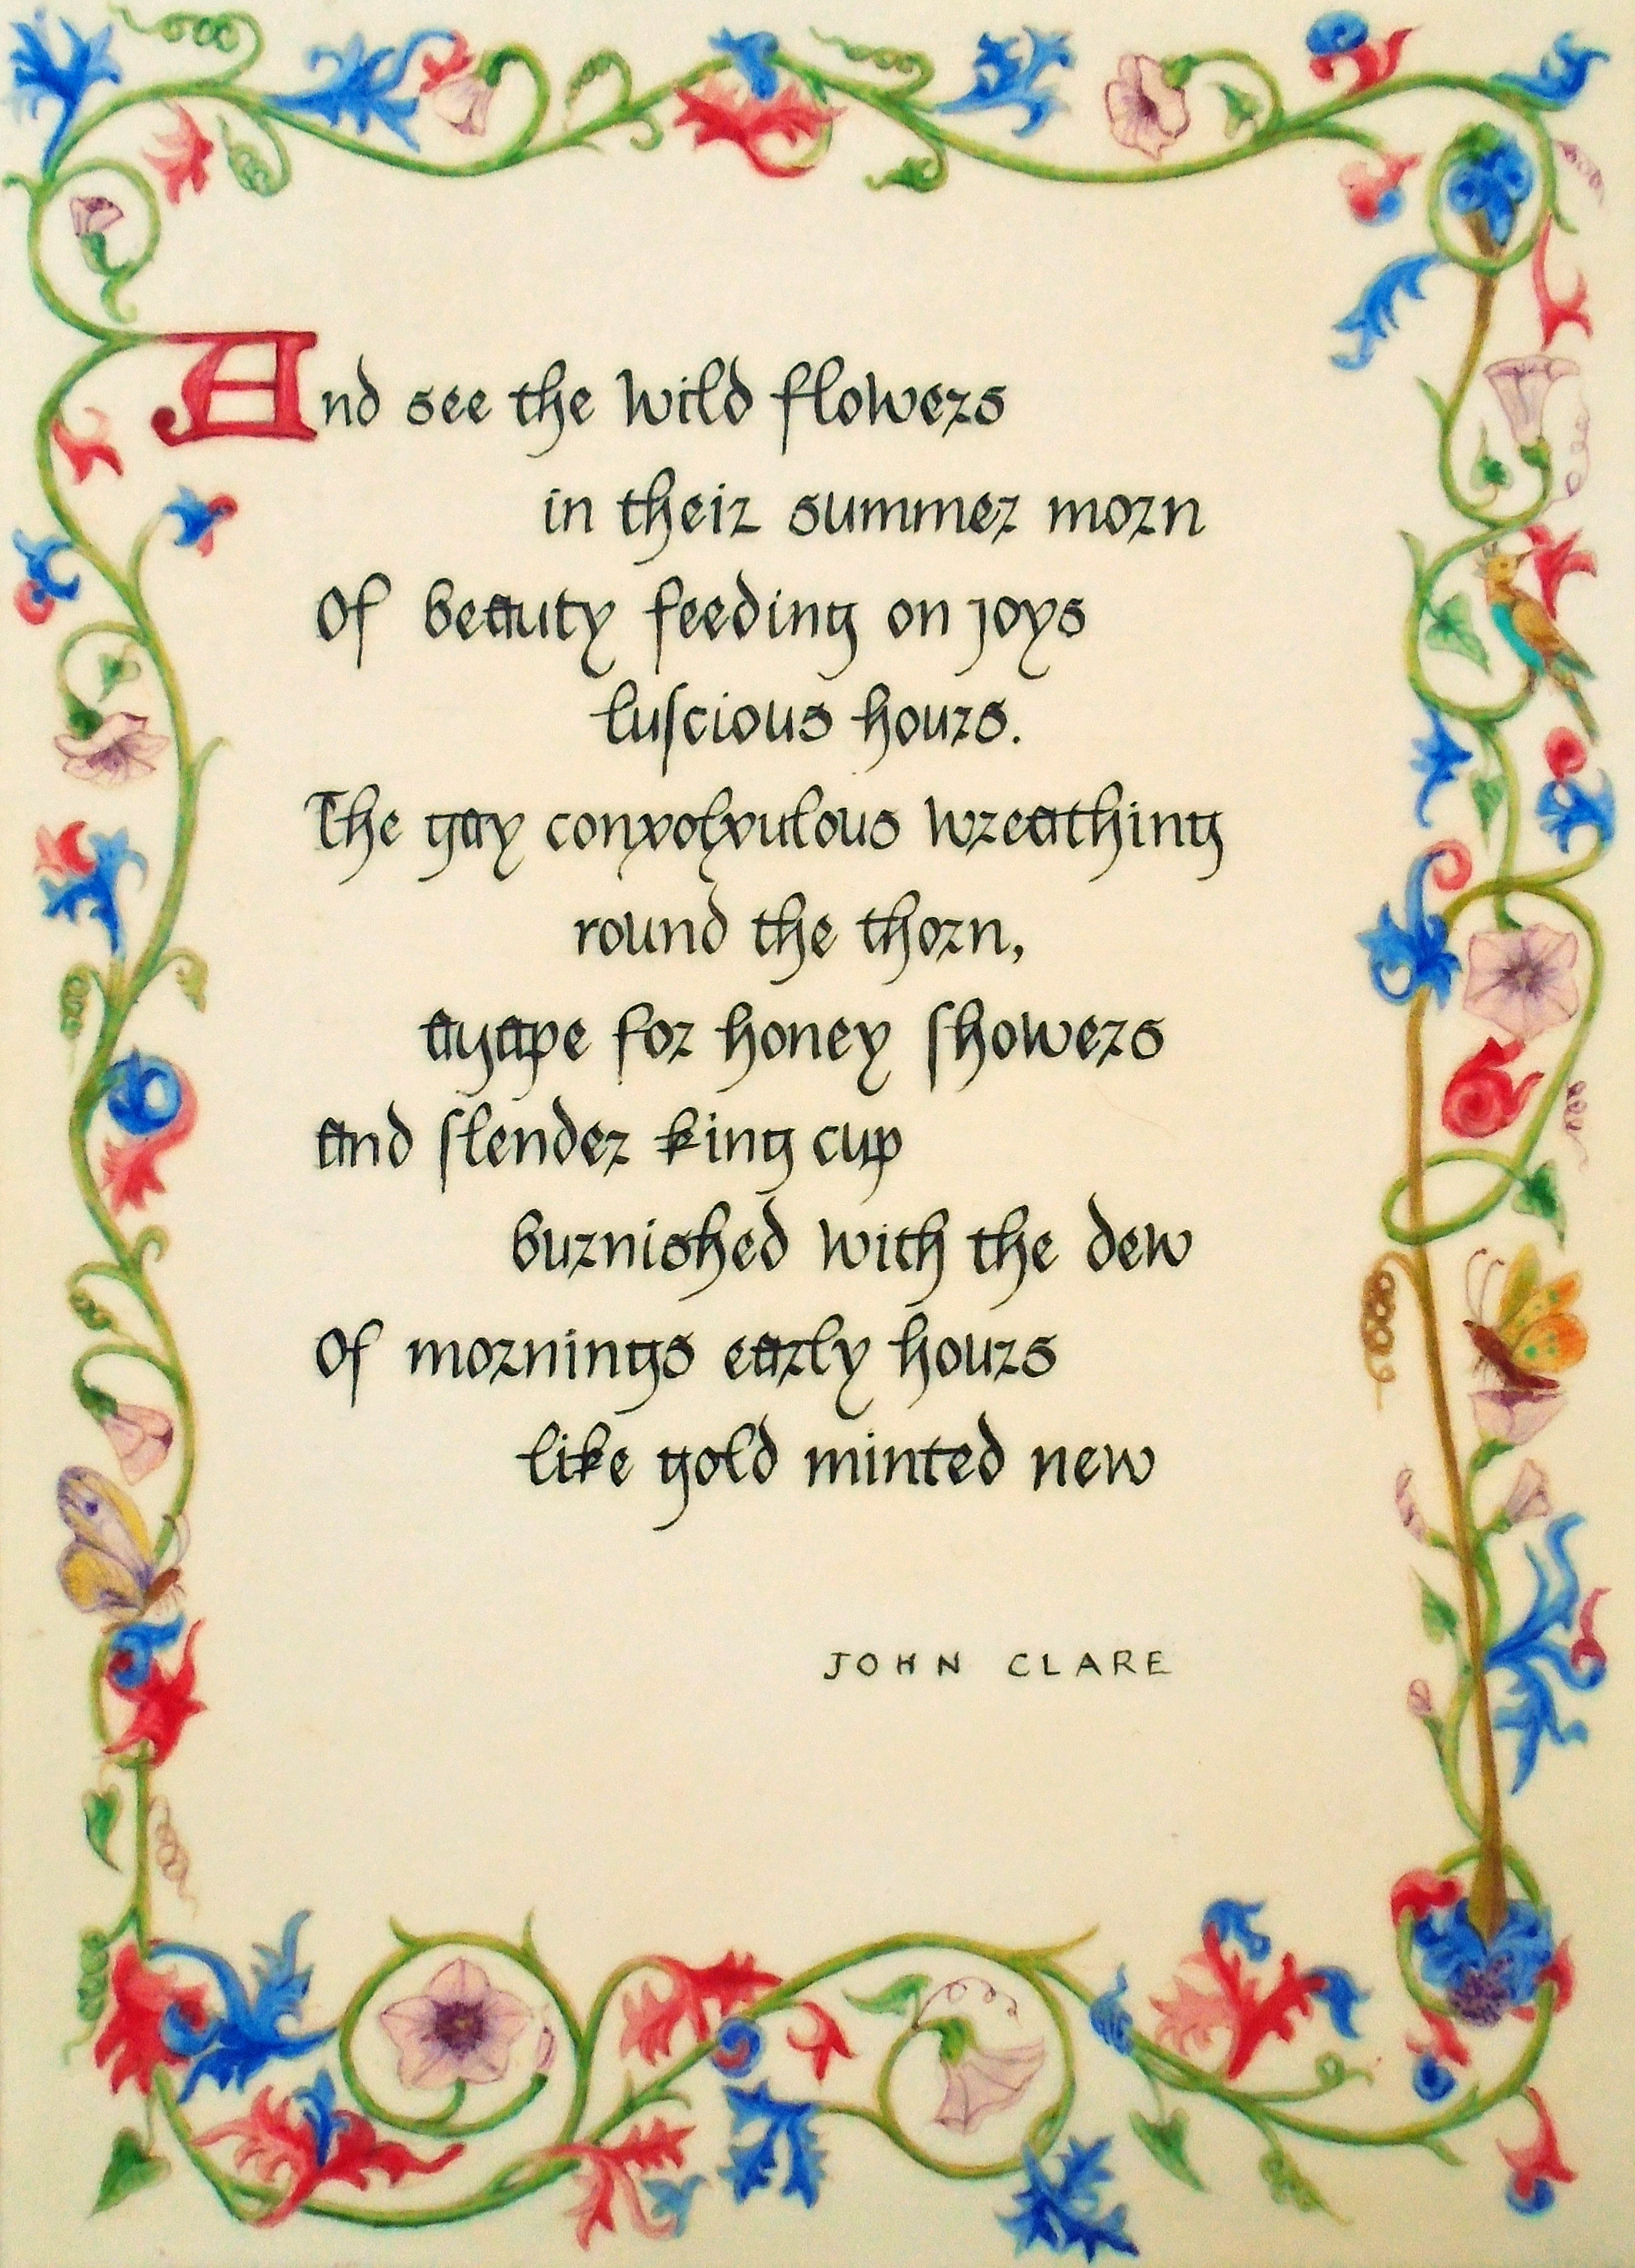 And see the wild flowers
in their summer morn
Of beauty feeding on joys
luſcious hours.
The gay convolvulous wreathing
round the thorn,
agape for honey ſhowers
and ſlender king cup
burnished with the dew
Of mornings early hours
like gold minted new
JOHN CLARE